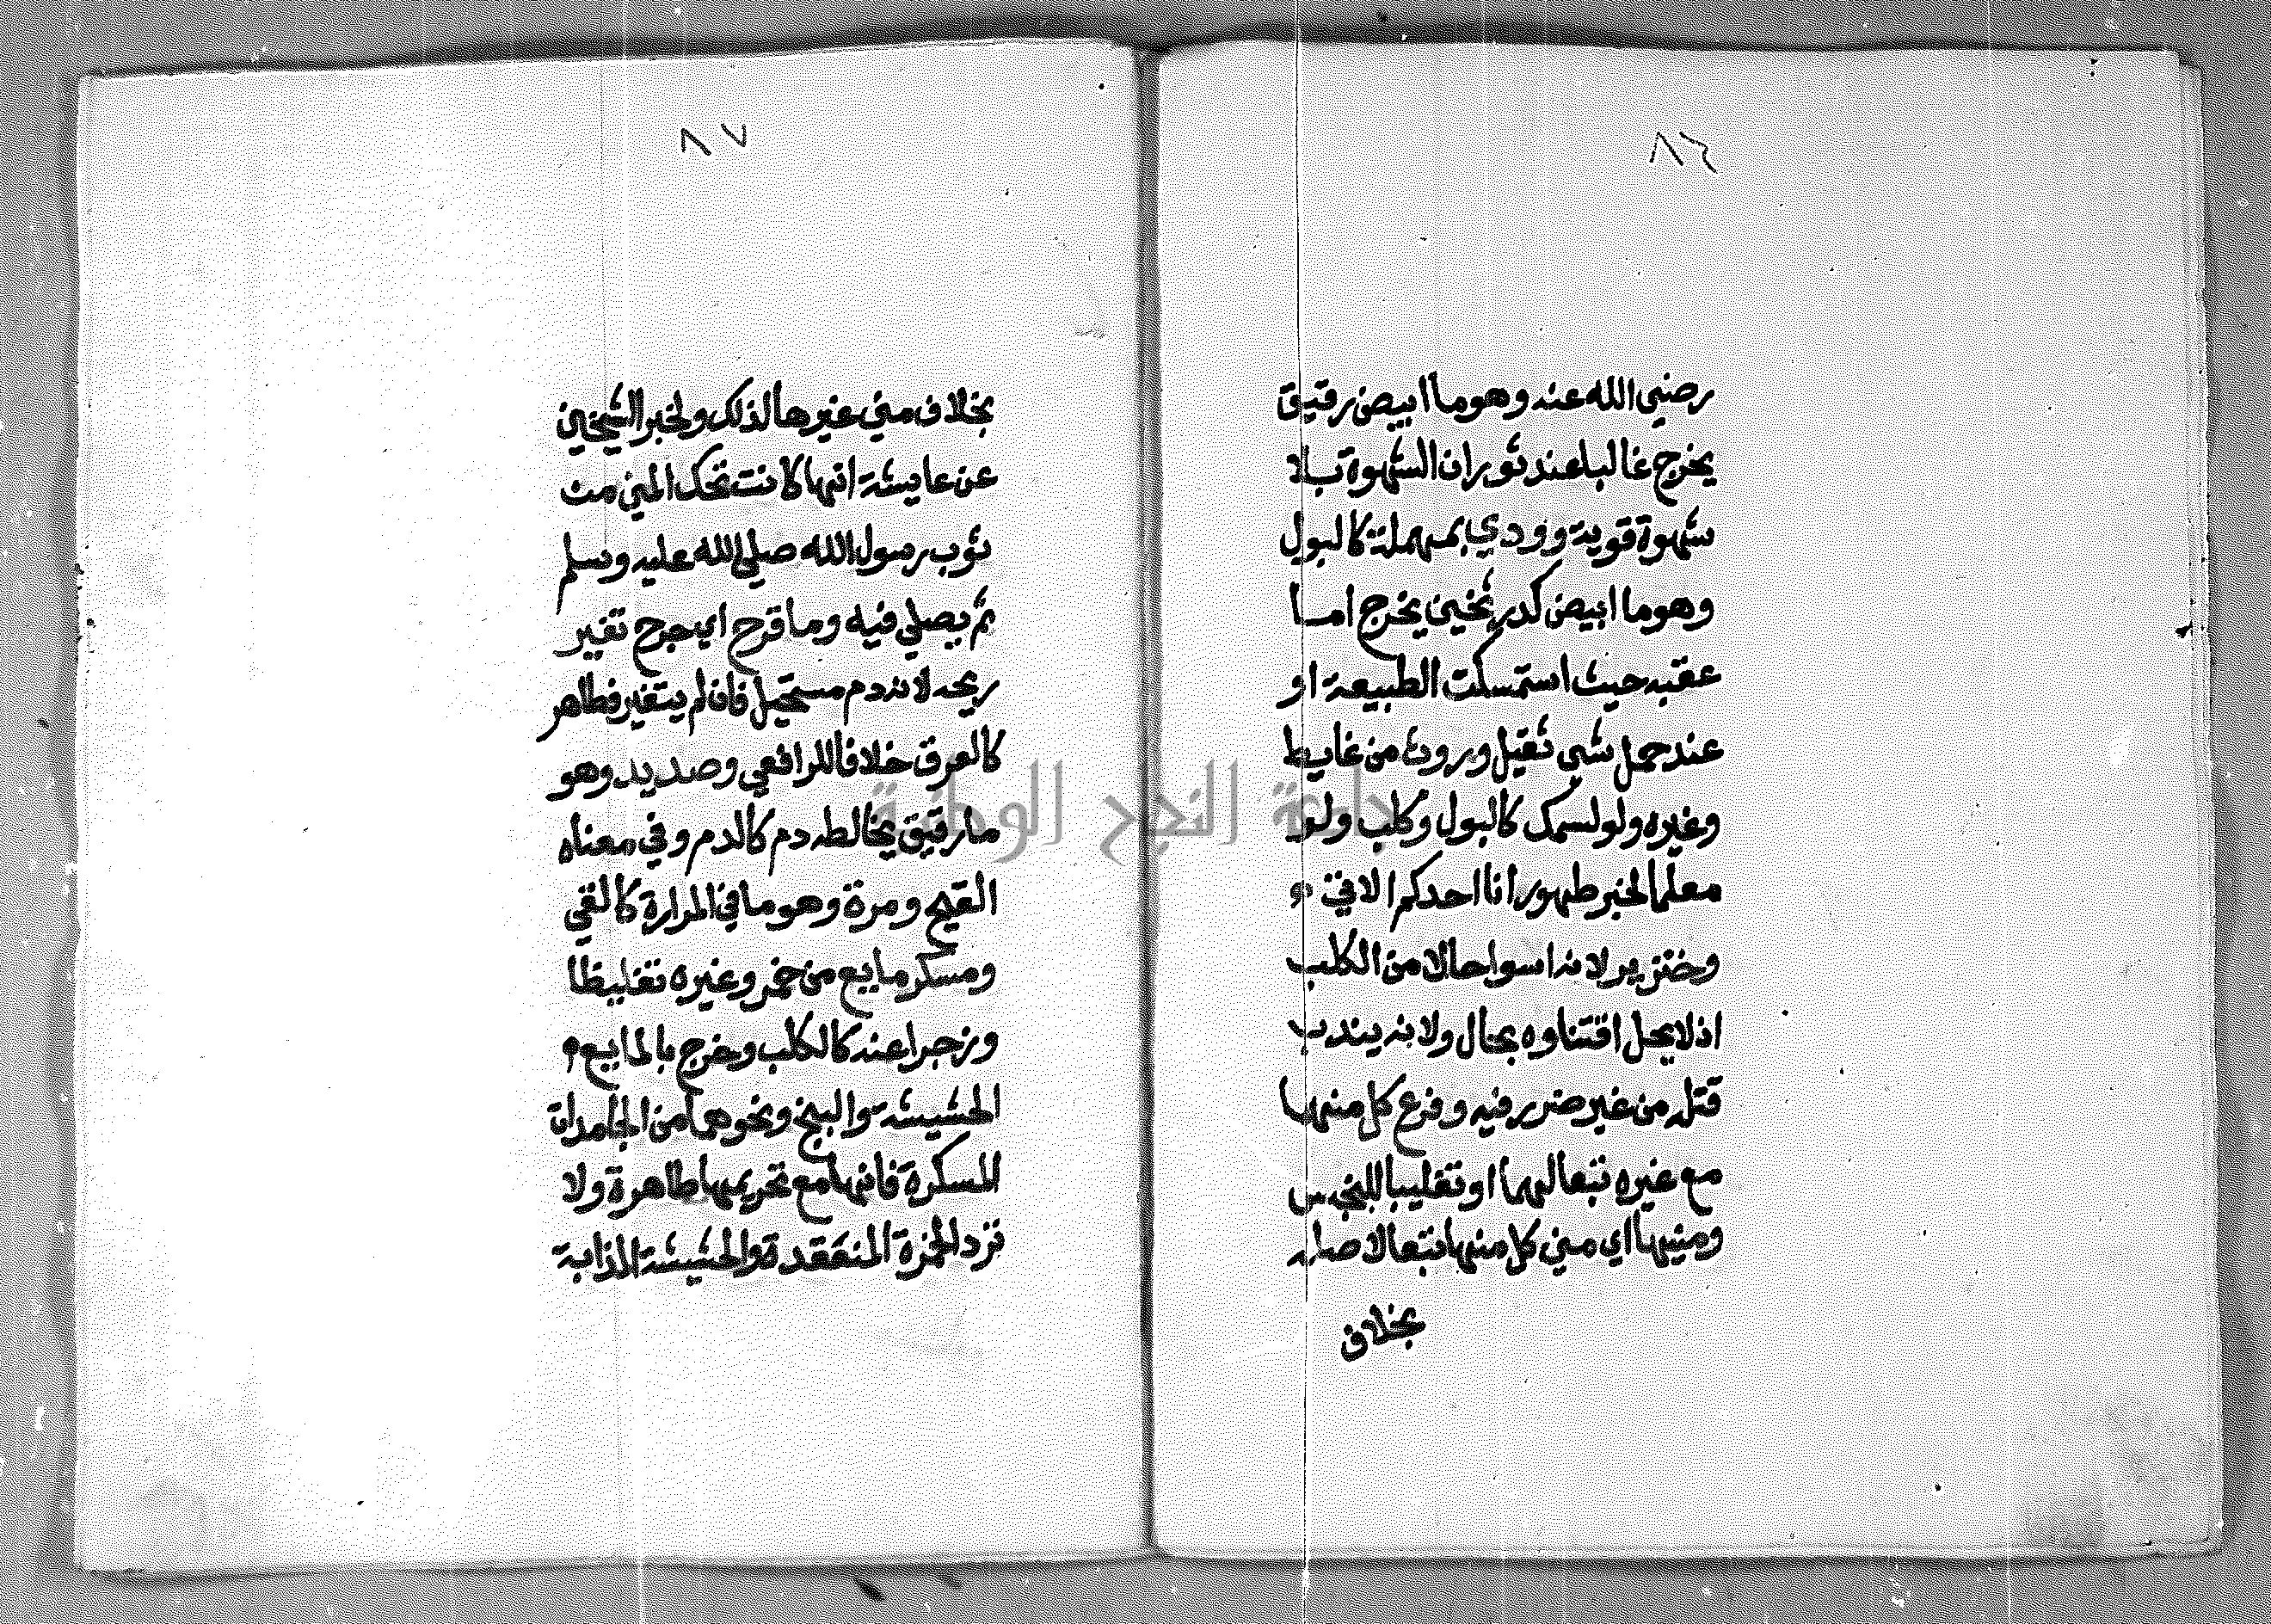 ٨٦
رضي الله عنه وهو ما ابيض رقيق
يخرج غالبا عند ثوران الشهوة بلا
شهوة قوية وودي بمهملة كالبول
وهو ما ابيض كدر ثخين يخرج اما
عقبه حيث استمسكت الطبيعة او
عند حمل شي ثقيل وروث من غايط
وغيره ولو لسمك كالبول وكلب ولو
معلما لخبر طهور انا احدكم الاتي
وخنزير لانه اسوا حالا من الكلب
اذ لا يحل اقتناوه بحال ولانه يندب
قتله من غير ضرر فيه وفرع كل منهما
مع غيره تبعا لهما او تغليبا للنجس
ومنيها اي مني كل منها تبعا لاصله
بخلاف
٨٧
بخلاف مني غيرها لذلك ولخبر الشيخين
عن عايشة انها كانت تحك المني من
ثوب رسول الله صلي الله عليه وسلم
ثم يصلي فيه وما قرح اي جرح تغير
ريحه لانه دم مستحيل فان لم يتغير فطاهر
كالعرق خلافا للرافعي وصديد وهو
ما رقيق يخالطه دم كالدم وفي معناه
القيح ومرة وهو ما في المرارة كالقي
ومسكر مايع من خمر وغيره تغليظا
وزجرا عنه كالكلب وخرج بالمايع
الحشيشة والبنج ونحوهما من الجامدات
المسكرة فانها مع تحريمها طاهرة ولا
ترد الخمرة المنعقدة والحشيشة المذابة
جامعة النجاح الوطنية